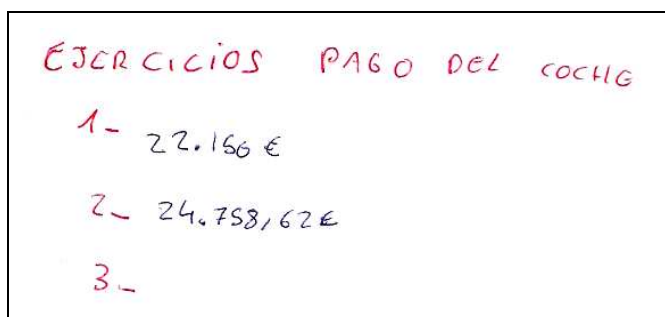 EJERCICIOS PAGO DEL COCHE
1- 22.150 €
2- 24.758,62€
3-